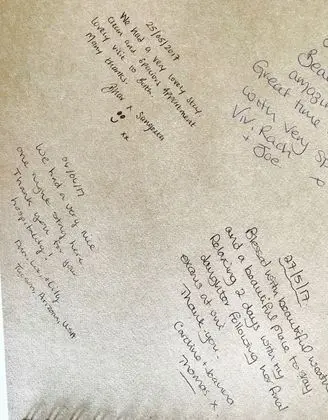 25/05/2017
We had a very lovely stay
clean and spacious appartment
lovely visit to Bath
Many thanks.
Sangeeta
xx
Bea
amaz
Great time
with very sp
Viv, Rach
+ Joe
04/06/17
We had a very nice
one night stay here
Thank you for your
hospitality!
Tucson, Arizona, USA
27/5/17
Blessed with beautiful weath
and a beautiful place to stay
Relaxing 2 days with my
daughter following her final
exams at uni
Thank you
Caroline +
Thomas x